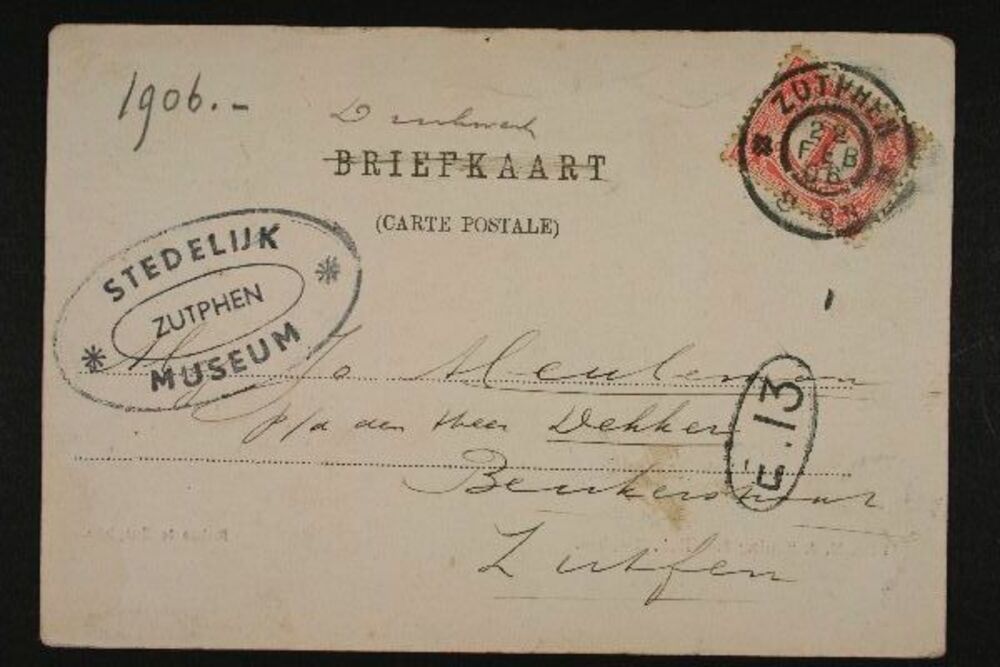 1906.-
Drukwerk
BRIEFKAART
(CARTE POSTALE)
ZUTPHEN
22
FEB
06
STEDELIJK
ZUTPHEN
MUSEUM
Jo Meuleman
p/a den Heer Dekker
E.13
Beukerstraat
Zutfen